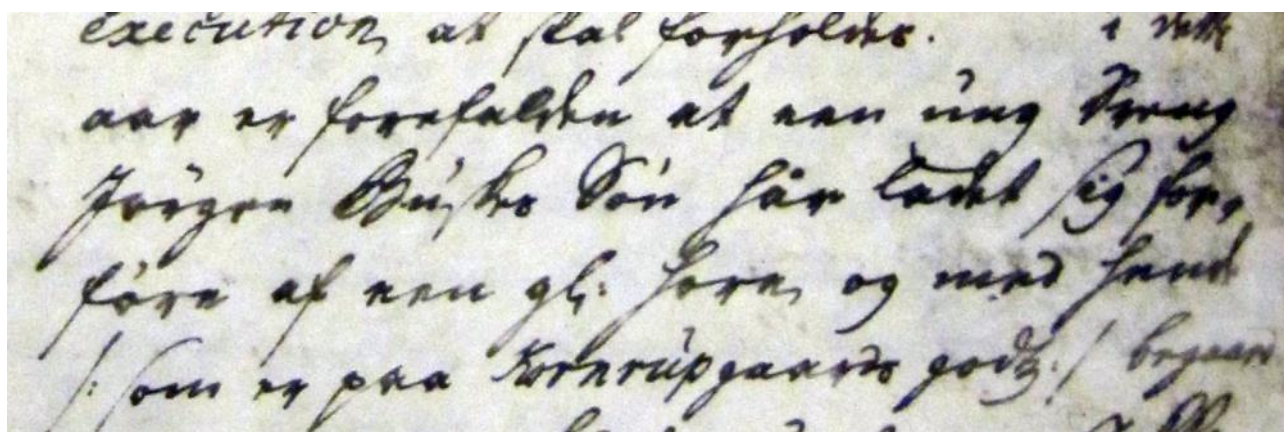 execution, at skal forholdes. i dette
aar er forefalden at een ung Dreng
Jørgen Buskes Søn hår ladet sig for,,
føre af een gl: Hore, og med hende
/: som er paa Kornerupgaards godz :/ begaaed